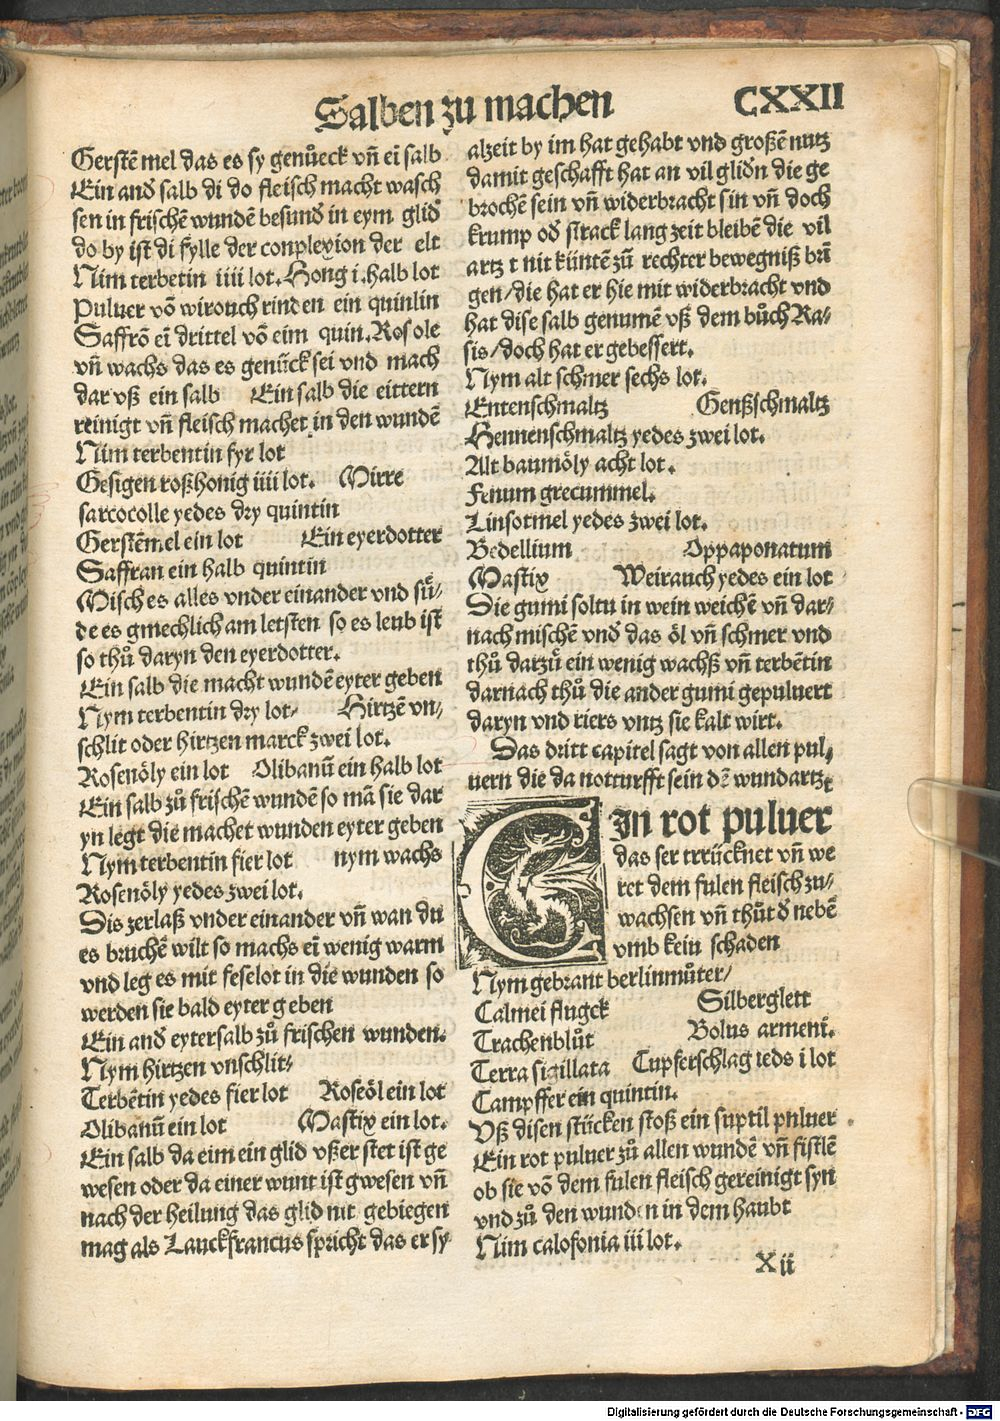 Salben zu machen CXXII
Gerstē mel das es sy genůeck vn̄ eī salb
Ein and̄ salb di do fleisch macht wasch
sen in frischē wundē besund̄ in eym glid̄
do by ist di fylle der conplexion der elt
Nim terbetin iiii lot. Hong i. halb lot
Puluer vō wirouch rinden ein quinlin
Saffrō eī drittel vō eim quin. Ros ole
vn̄ wachs das es genůck sei vnd mach
dar vß ein salb Ein salb die eittern
reinigt vn̄ fleisch machet in den wundē
Nim terbentin fyr lot
Gesigen roßhonig iiii lot. Mirre
sarcocolle yedes dry quintin
Gerstēmel ein lot Ein eyerdotter
Saffran ein halb quintin
Misch es alles vnder einander vnd sü⸗
de es gmechlich am letsten so es leub ist
so thů daryn den eyerdotter.
Ein salb die macht wundē eyter geben
Nym terbentin dry lot⸗ Hirtzē vn⸗
schlit oder hirtzen marck zwei lot.
Rosenöly ein lot Olibanū ein halb lot
Ein salb zů frischē wundē so mā sie dar
yn legt die machet wunden eyter geben
Nym terbentin fier lot nym wachs
Rosenöly yedes zwei lot.
Dis zerlaß vnder einander vn̄ wan du
es bruchē wilt so machs eī wenig warm
vnd leg es mit feselot in die wunden so
werden sie bald eyter geben
Ein and̄ eytersalb zů frischen wunden.
Nym hirtzen vnschlit⸗
Terbētin yedes fier lot Roseöl ein lot
Olibanū ein lot Mastix ein lot.
Ein salb da eim ein glid vßer stet ist ge
wesen oder da einer wunt ist gwesen vn̄
nach der heilung das glid nit gebiegen
mag als Lanckfrancus spricht das er sy
alzeit by im hat gehabt vnd großē nutz
damit geschafft hat an vil glid̄n die ge
brochē sein vn̄ widerbracht sin vn̄ doch
krump od̄ strack lang zeit bleibē die vil
artzt nit küntē zů rechter bewegniß brī
gen/die hat er hie mit widerbracht vnd
hat dise salb genumē vß dem bůch Ra⸗
sis/doch hat er gebessert.
Nym alt schmer sechs lot.
Entenschmaltz Genßschmaltz
Hennenschmaltz yedes zwei lot.
Alt baumöly acht lot.
Fenum grecummel.
Linsotmel yedes zwei lot.
Bedellium Oppaponatum
Mastix Weirauch yedes ein lot
Die gumi soltu in wein weichē vn̄ dar⸗
nach mischē vnd̄ das öl vn̄ schmer vnd
thů darzů ein wenig wachß vn̄ terbētin
darnach thů die ander gumi gepuluert
daryn vnd riers vntz sie kalt wirt.
Das dritt capitel sagt von allen pul⸗
uern die da notturfft sein dē wundartzt
EIn rot puluer
das ser trrücknet vn̄ we
ret dem fulen fleisch zu⸗
wachsen vn̄ thůt d̄ nebē
vmb kein schaden
Nym gebrant berlinmůter/
Calmei flugck Silberglett
Trachenblůt Bolus armenī.
Terra sigillata Cupferschlag ieds i lot
Campffer ein quintin.
Vß disen stücken stoß ein suptil puluer
Ein rot puluer zů allen wundē vn̄ fistlē
ob sie vō dem fulen fleisch gereinigt syn
vnd zů den wunden in dem haubt
Nim calofonia iii lot.
X ii
Digitalisierung gefördert durch die Deutsche Forschungsgemeinschaft - DFG